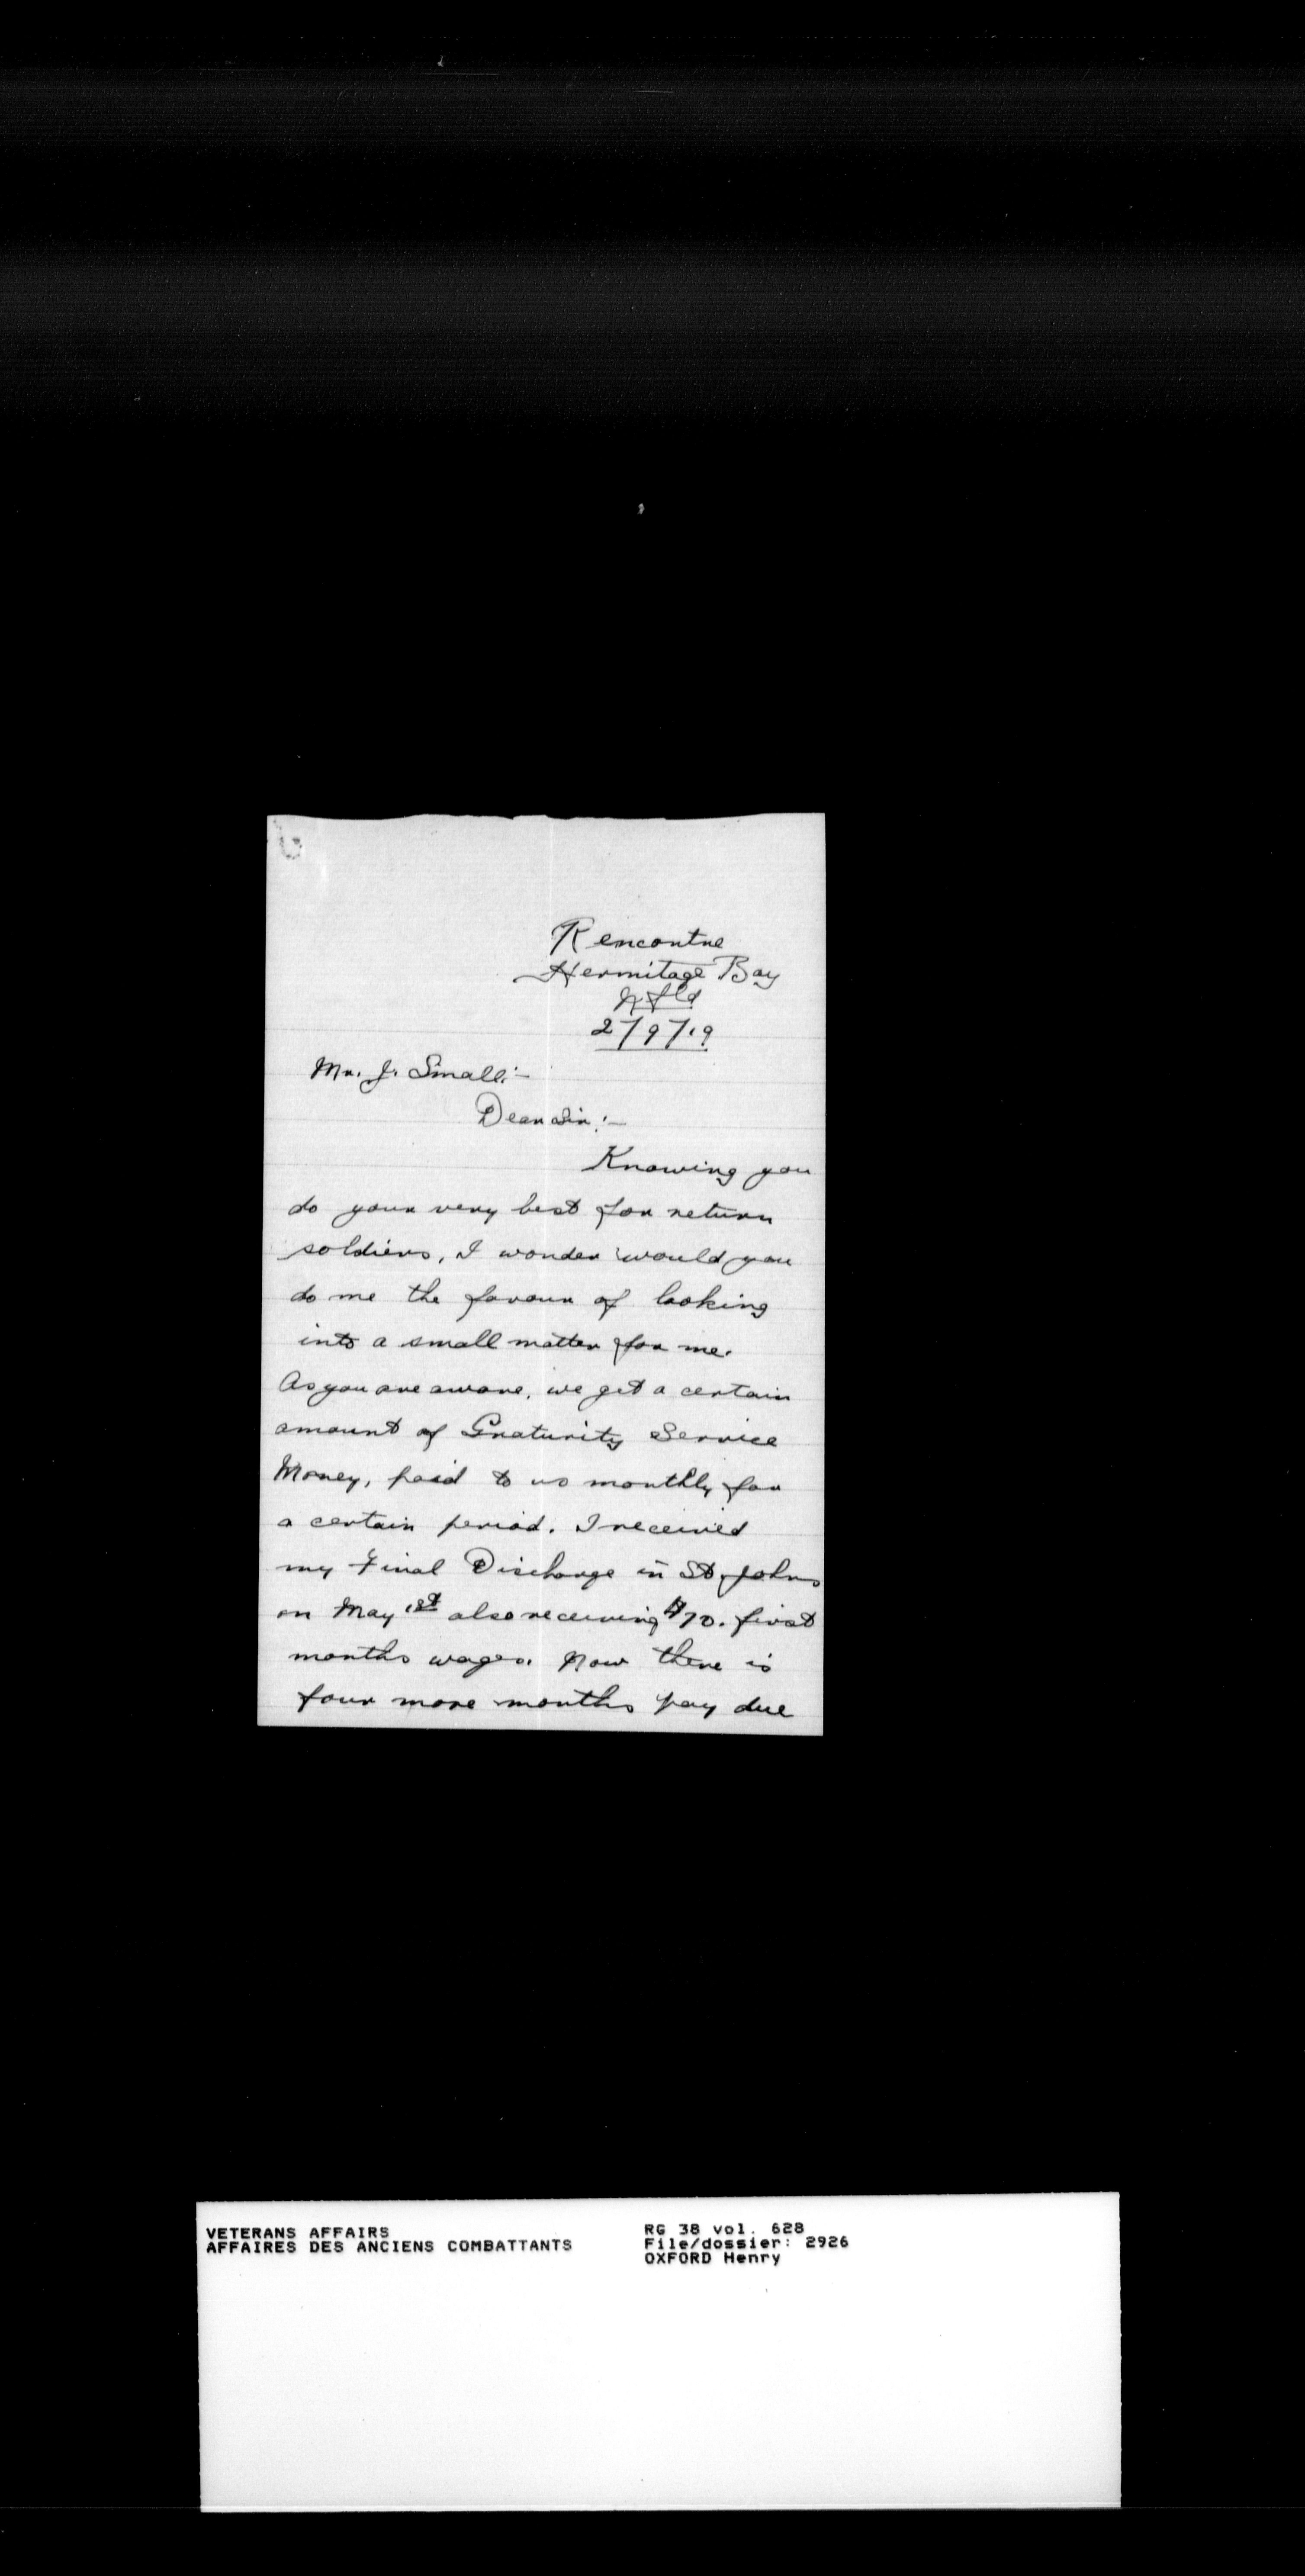 Rencontre
Hermitage Bay
Nfld
2/9/19
Mr. J. Small:-
Dear Sir:-
Knowing you
do your very best for return
soldiers, I wonder would you
do me the favour of looking
into a small matter for me.
As you are aware, we get a certain
amount of Graturity Service
Money, paid to us monthly for
a certain period. I received
my Final Discharge in St. Johns
on May 1st also receiving $70. first
months wages. Now there is
four more months pay due
VETERANS AFFAIRS
AFFAIRES DES ANCIENS COMBATTANTS
RG 38 vol. 628
File/dossier: 2926
OXFORD Henry